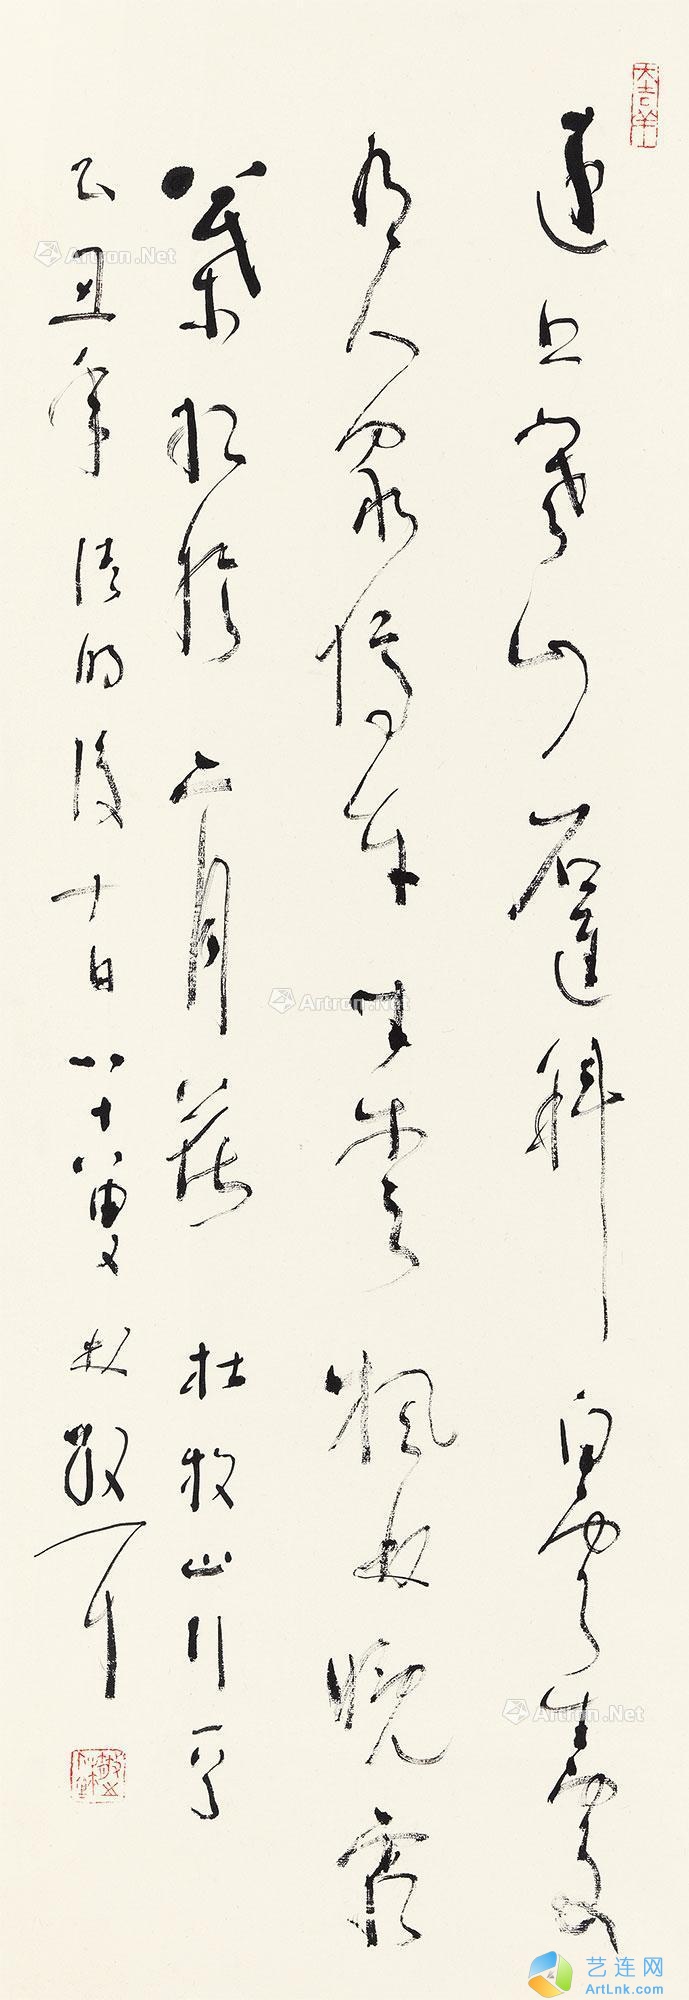 大吉羊
遠上寒山石逕斜白雲生處
有人家停車坐愛楓林晚霜
葉紅於二月花杜牧山行
乙丑年清明後十日八十八叟林散耳
Artron.Net
Artron.Net
Artron.Net
艺连网
ArtLnk.com